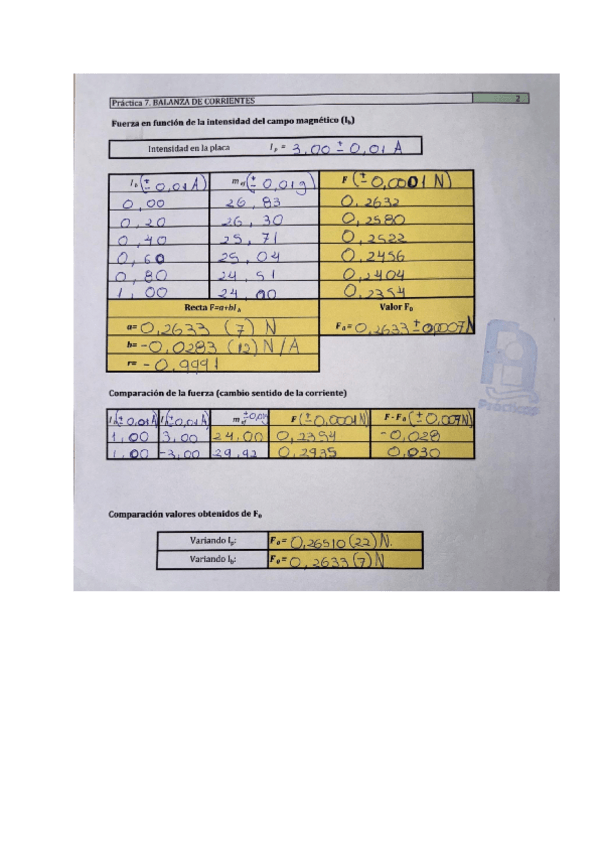 Práctica 7. BALANZA DE CORRIENTES 2
Fuerza en función de la intensidad del campo magnético (Ib)
Intensidad en la placa Ip = 3,00 ± 0,01 A
Ib (± 0,01 A) mef (± 0,01 g) F (± 0,0001 N)
0,00 26,83 0,2632
0,20 26,30 0,2580
0,40 25,71 0,2522
0,60 25,04 0,2456
0,80 24,51 0,2404
1,00 24,00 0,2354
Recta F=a+bIb Valor F0
a= 0,2633 (7) N F0= 0,2633 ± 0,0007 N
b= -0,0283 (12) N/A
r= -0,9991
Comparación de la fuerza (cambio sentido de la corriente)
(± 0,01 A) (± 0,01 A) mef ± 0,01 F (± 0,0001 N) F - F0 (± 0,007 N)
1,00 3,00 24,00 0,2354 -0,028
1,00 -3,00 29,92 0,2935 0,030
Comparación valores obtenidos de F0
Variando Ip: F0= 0,26510 (22) N
Variando Ib: F0= 0,2633 (7) N
Prácticas